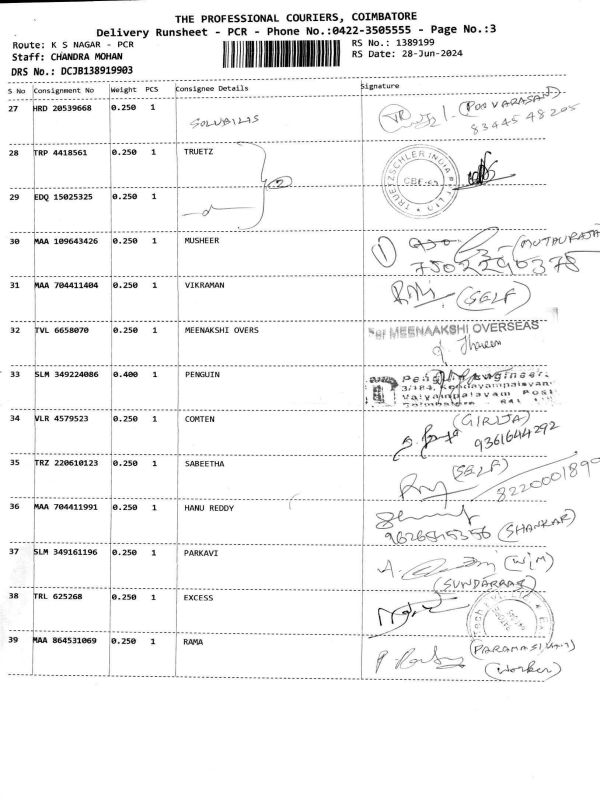 THE PROFESSIONAL COURIERS, COIMBATORE
Delivery Runsheet - PCR - Phone No.:0422-3505555 - Page No.:3
Route: K S NAGAR - PCR
RS No.: 1389199
Staff: CHANDRA MOHAN
RS Date: 28-Jun-2024
DRS No.: DCJB138919903
S No Consignment No Weight PCS Consignee Details Signature
27 HRD 20539668 0.250 1 SOLUBILIS
(POOVARASAN)
83445 48205
28 TRP 4418561 0.250 1 TRUETZ
TRUETZSCHLER INDIA
2
29 EDQ 15025325 0.250 1
30 MAA 109643426 0.250 1 MUSHEER
1 (MUTHURAJA
7502290378
31 MAA 704411404 0.250 1 VIKRAMAN
(SELF)
32 TVL 6658070 0.250 1 MEENAKSHI OVERS
For MEENAAKSHI OVERSEAS
33 SLM 349224086 0.400 1 PENGUIN
34 VLR 4579523 0.250 1 COMTEN
(GIRIJA)
9361644292
35 TRZ 220610123 0.250 1 SABEETHA
(SELF)
8220001890
36 MAA 704411991 0.250 1 HANU REDDY
(SHANKAR)
37 SLM 349161196 0.250 1 PARKAVI
(W/M)
(SUNDARRAJ)
38 TRL 625268 0.250 1 EXCESS
39 MAA 864531069 0.250 1 RAMA
(worker)